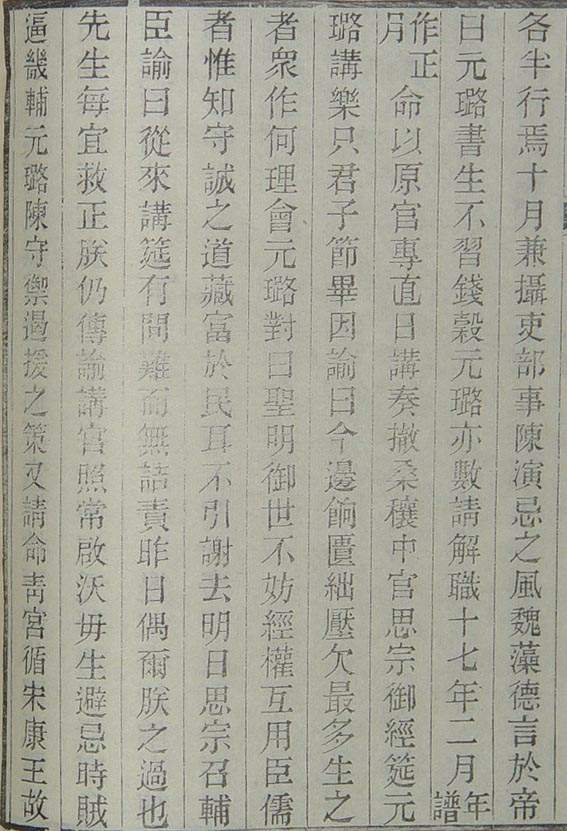 各半行焉十月兼攝吏部事陳演忌之風魏藻德言於帝
曰元璐書生不習錢穀元璐亦數請解職十七年二月年譜
作正月命以原官專直日講奏撤桑穰中官思宗御經筵元
璐講樂只君子節畢因諭曰今邊餉匱絀壓欠最多生之
者衆作何理會元璐對曰聖明御世不妨經權互用臣儒
者惟知守誠之道藏富於民耳不引謝去明日思宗召輔
臣諭曰從來講筵有問難而無詰責昨日偶爾朕之過也
先生每宜救正朕仍傳諭講官照常啟沃毋生避忌時賊
逼畿輔元璐陳守禦遏援之策又請命靑宮循宋康王故